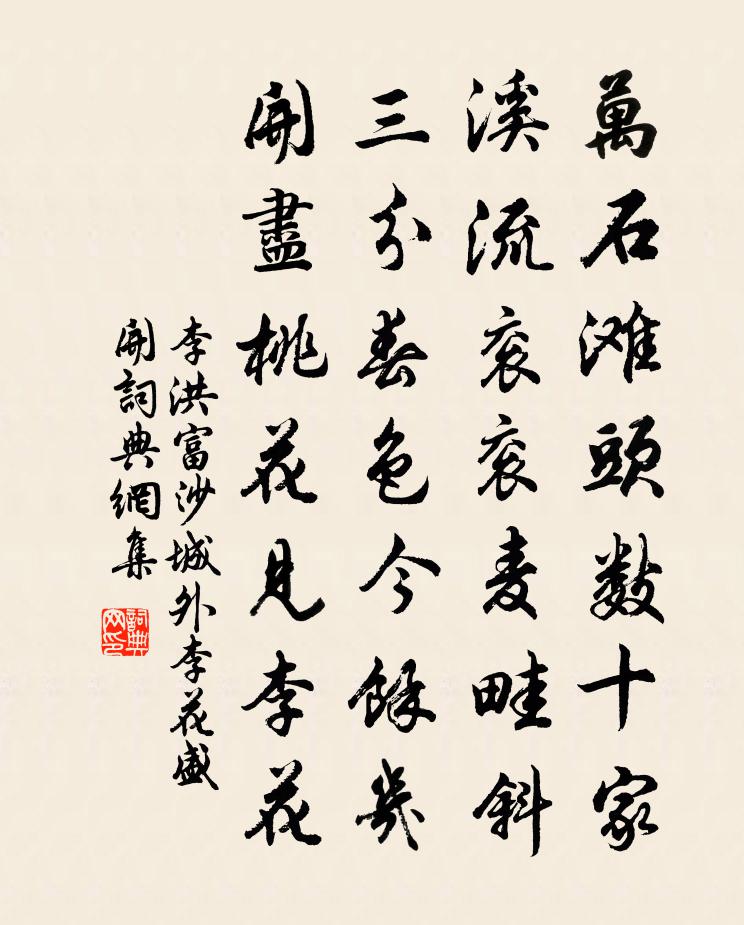 萬石滩頭数十家
溪流衮衮麦畦斜
三分春色今餘幾
開盡桃花見李花
李洪富沙城外李花盛
開詞典網集
詞典网印